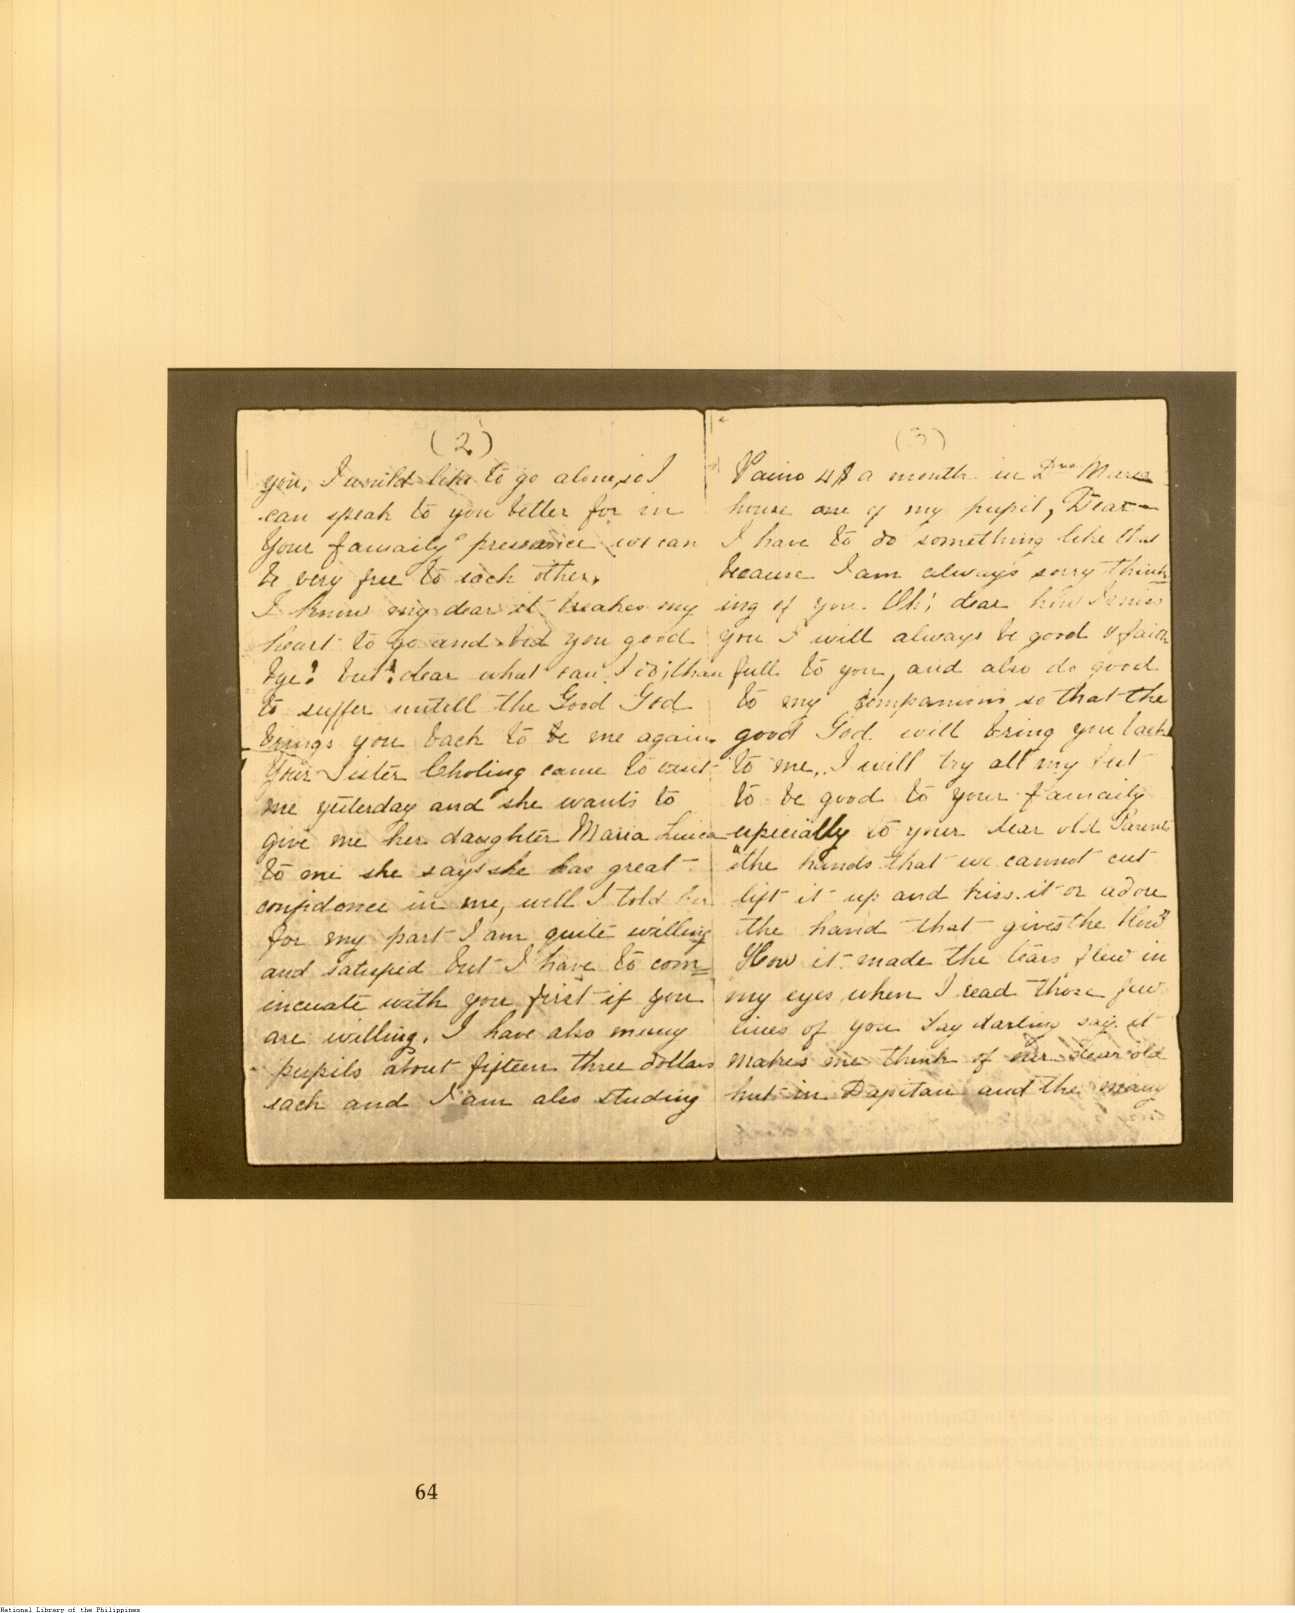 (2)
you, I would like to go alone, so I
can speak to you better for in
Your famaily's pressance we can
be very free to each other.
I know my dear it breakes my
heart to go and bid you good
bye? but? dear what can I do; than
to suffer untill the Good God
brings you back to be me again.
Your Sister Choling came to visit
me yesterday and she want's to
give me her daughter Maria Luisa
to me she say's she has great
confidence in me, well I told her
for my part I am quite willing
and satisfied but I have to com=
incuate with you first if you
are willing. I have also many
pupils about fifteen three dollars
each and I am also studing
(3)
Paino 4$ a month in Dña Maria
house one of my pupil, Dear—
I have to do something like that
because I am always sorry think
ing of you. Oh! dear how I miss
you I will always be good & faith
full to you, and also do good
to my companions so that the
good God will bring you back
to me, I will try all my best
to be good to your famaily
especially to your dear old Parents
"the hands that we cannot cut
lift it up and kiss it or adore
the hand that gives the blow"
How it made the tears flew in
my eyes when I read those few
lines of you Say darling say it
makes me think of our dear old
hut in Dapitan and the many
64
National Library of the Philippines